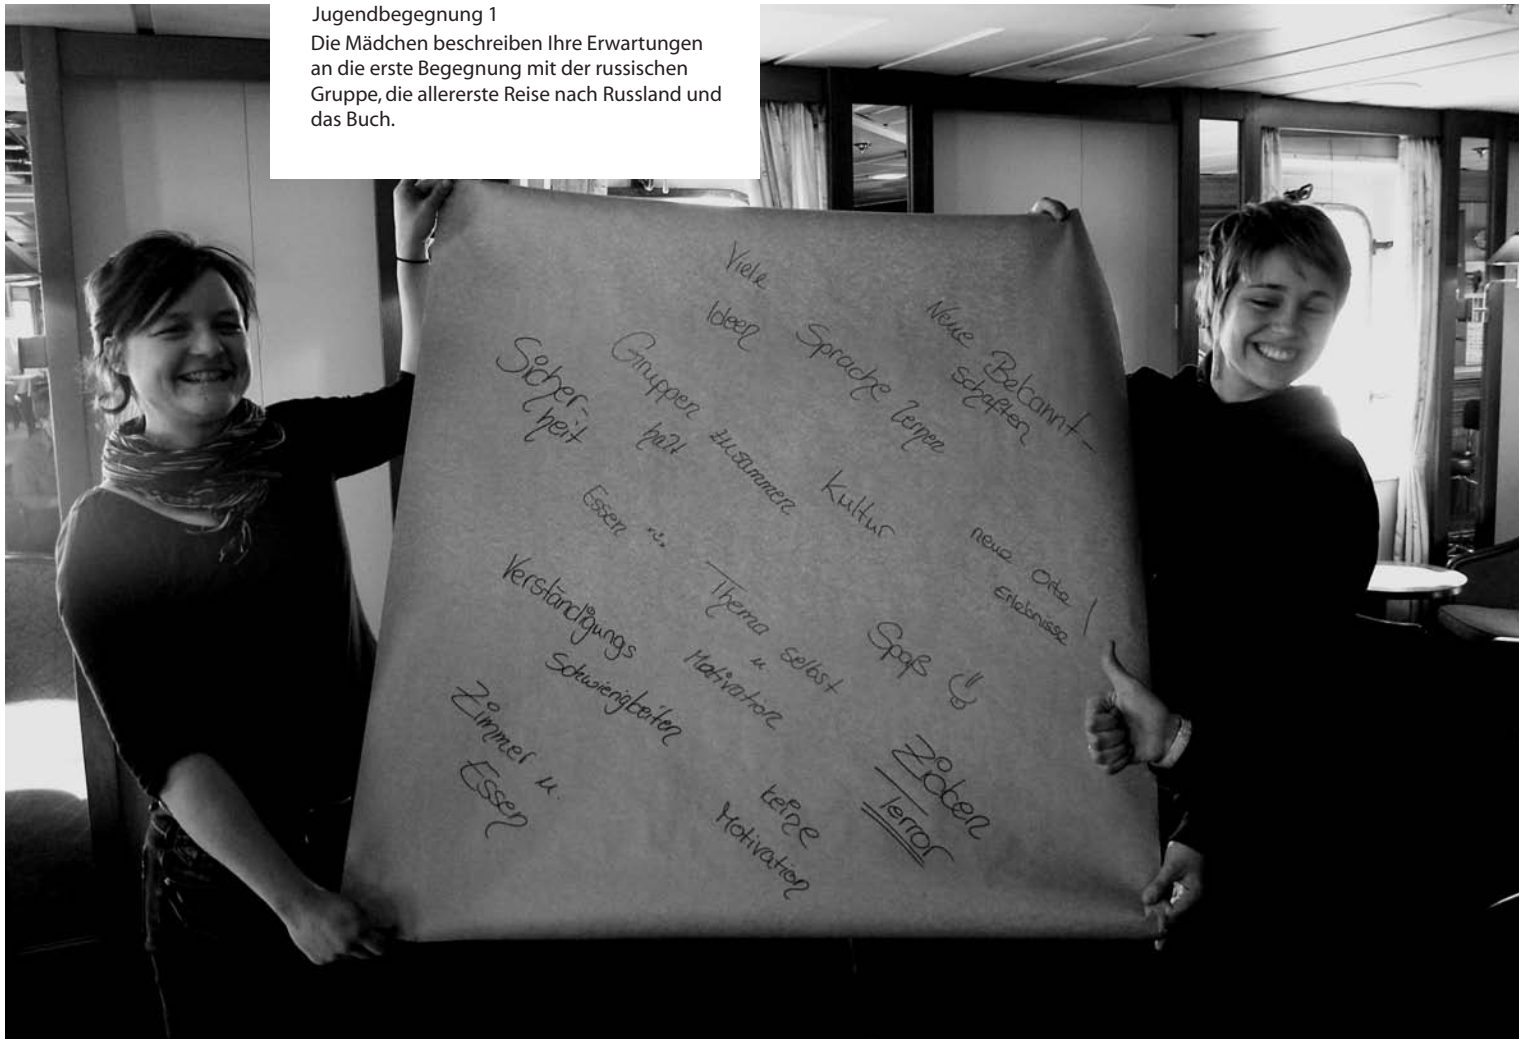 Jugendbegegnung 1
Die Mädchen beschreiben Ihre Erwartungen
an die erste Begegnung mit der russischen
Gruppe, die allererste Reise nach Russland und
das Buch.
Viele
Ideen
Sprache lernen
Neue Bekannt-
schaften
Sicher-
heit
Gruppen zusammen
halt
Kultur
neue Orte
Erlebnisse !
Essen
Thema selbst
u.
Motivation
Spaß
Verständigungs
Schwierigkeiten
Zimmer u.
Essen
keine
Motivation
Zicken
Terror